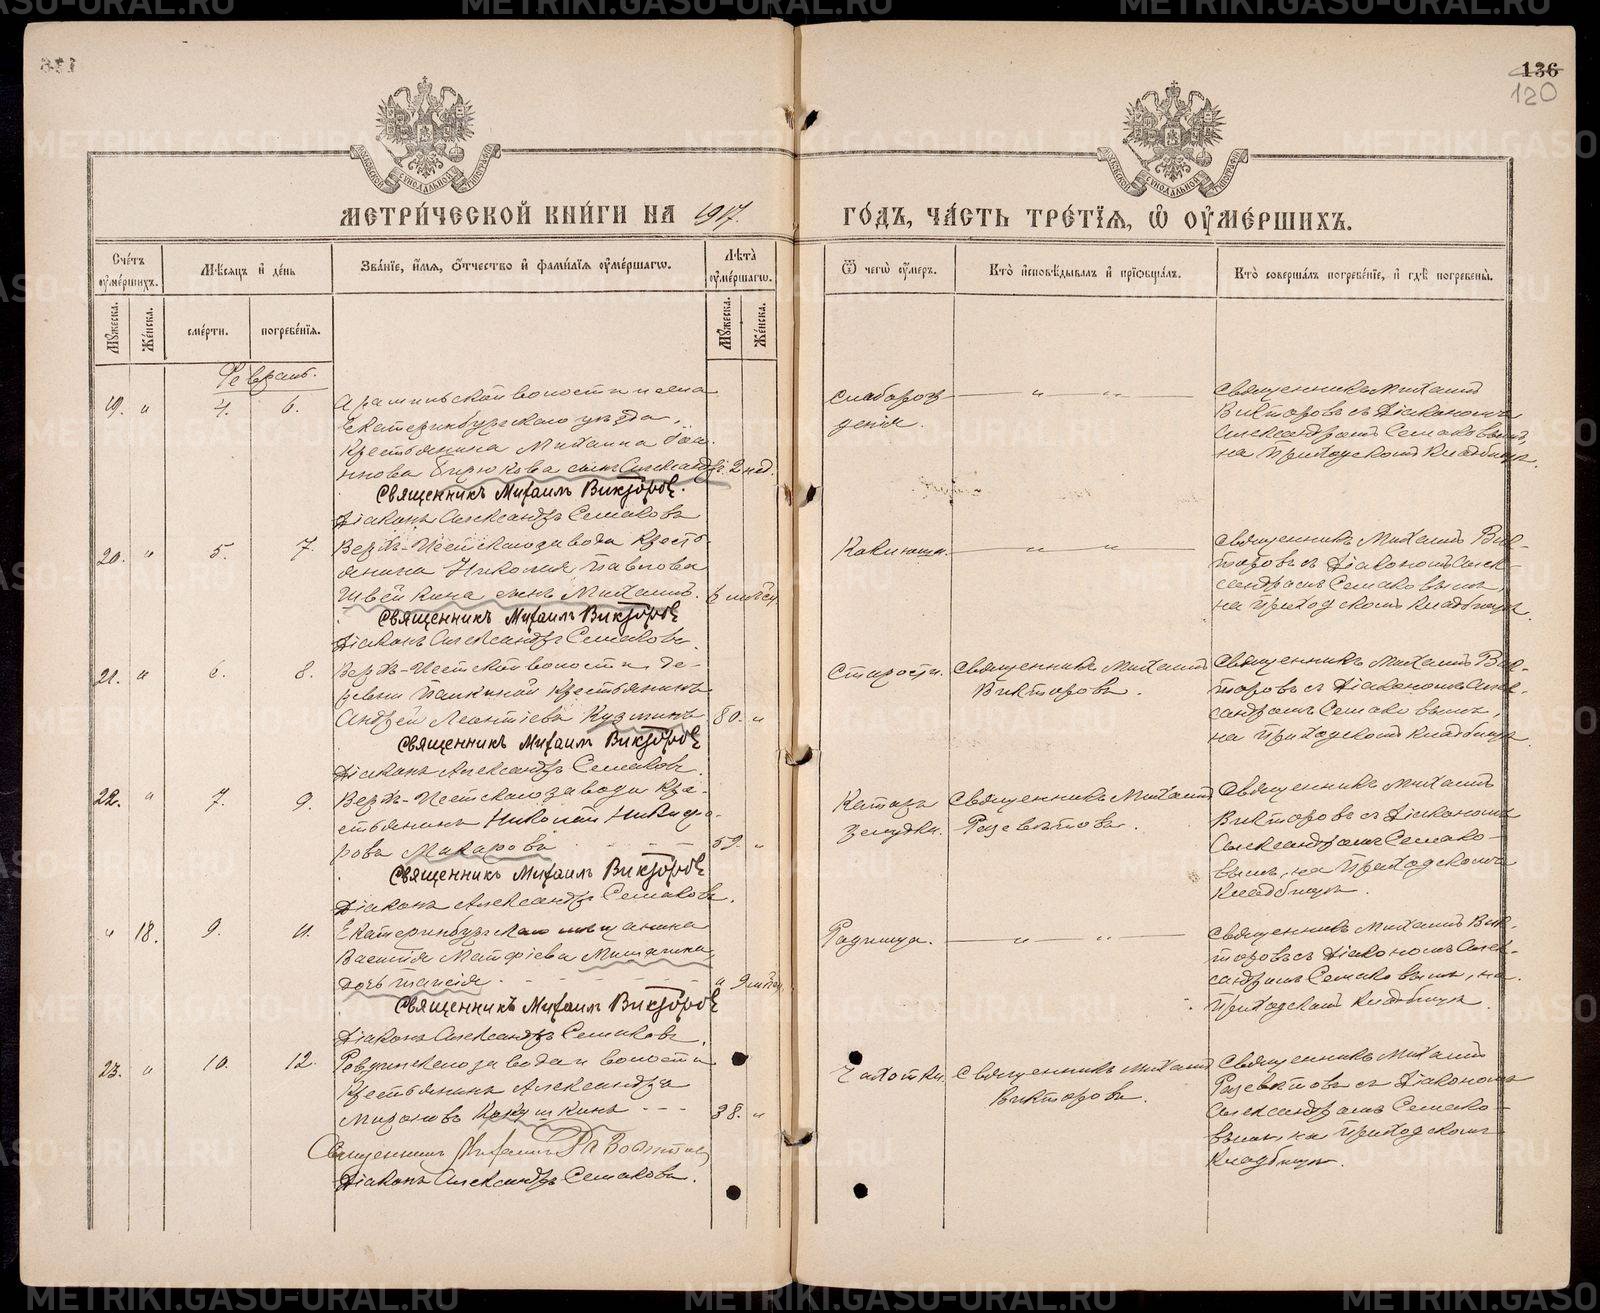 136
120
МЕТРИ́ЧЕСКОЙ КНИ́ГИ НА 1917.
ГО́ДЪ, ЧА́СТЬ ТРЕ́ТІЯ, Ѡ҆ ОУ҆МЕ́РШИХЪ.
Сче́тъ оу҆ме́ршихъ.
Мꙋ́жеска.
Же́нска.
Мѣ́сяцъ и҆ де́нь
сме́рти.
погребе́нїя.
Зва́нїе, и҆́мя, ѻ҆́тчество и҆ фами́лїя оу҆ме́ршагѡ.
Лѣ́та оу҆ме́ршагѡ.
Мꙋ́жеска.
Же́нска.
Ѿ чегѡ̀ оу҆́меръ.
Кто̀ и҆сповѣ́дывалъ и҆ прїѡбща́лъ.
Кто̀ соверша́лъ погребе́нїе, и҆ гдѣ̀ погребены̀.
Февраль.
19. " 4. 6.
Арамильской волости и села
Екатеринбургскаго уѣзда,
Крестьянина Михаила Іоан-
нова Бирюкова сынъ Александръ. 2 нед.
Священникъ Михаилъ Викторовъ.
Діаконъ Александръ Семаковъ
слаборож
денія.
" "
Священникъ Михаилъ
Викторовъ съ Діакономъ
Александромъ Семаковымъ,
на Приходскомъ кладбищѣ.
20. " 5. 7.
Верхъ-Исетскаго завода Кресть-
янина Николая Павлова
Швейкина сынъ Михаилъ. 6 мѣсяц.
Священникъ Михаилъ Викторовъ
Діаконъ Александръ Семаковъ.
Коклюша.
" "
Священникъ Михаилъ Вик-
торовъ съ Діакономъ Алек-
сандромъ Семаковымъ,
на Приходскомъ кладбищѣ.
21. " 6. 8.
Верхъ-Исетской волости, де-
ревни Палкиной Крестьянинъ
Андрей Леонтіевъ Кузминъ 80. "
Священникъ Михаилъ Викторовъ
Діаконъ Александръ Семаковъ.
Старости.
Священникъ Михаилъ
Викторовъ.
Священникъ Михаилъ Вик-
торовъ съ Діакономъ Алек-
сандромъ Семаковымъ,
на Приходскомъ кладбищѣ.
22. " 7. 9.
Верхъ-Исетскаго завода Кре-
стьянинъ Николай Никифо-
ровъ Макаровъ 59. "
Священникъ Михаилъ Викторовъ
Діаконъ Александръ Семаковъ.
Катара
желудка.
Священникъ Михаилъ
Священникъ Михаилъ
Викторовъ съ Діакономъ
Александромъ Семако-
вымъ, на Приходскомъ
кладбищѣ.
" 18. 9. 11.
Екатеринбургскаго мѣщанина
Василія Матфіева
дочь Таисія " 9 мѣсяц.
Священникъ Михаилъ Викторовъ
Діаконъ Александръ Семаковъ.
Родимца.
" "
Священникъ Михаилъ Вик-
торовъ съ Діакономъ Алек-
сандромъ Семаковымъ, на
Приходскомъ кладбищѣ.
23. " 10. 12.
Ревдинскаго завода и волости
Крестьянинъ Александръ
Мироновъ Кокушкинъ 38. "
Священникъ Михаилъ
Діаконъ Александръ Семаковъ.
Чахотки.
Священникъ Михаилъ
Викторовъ.
Священникъ Михаилъ
съ Діакономъ
Александромъ Семако-
вымъ, на Приходскомъ
кладбищѣ.
METRIKI.GASO-URAL.RU